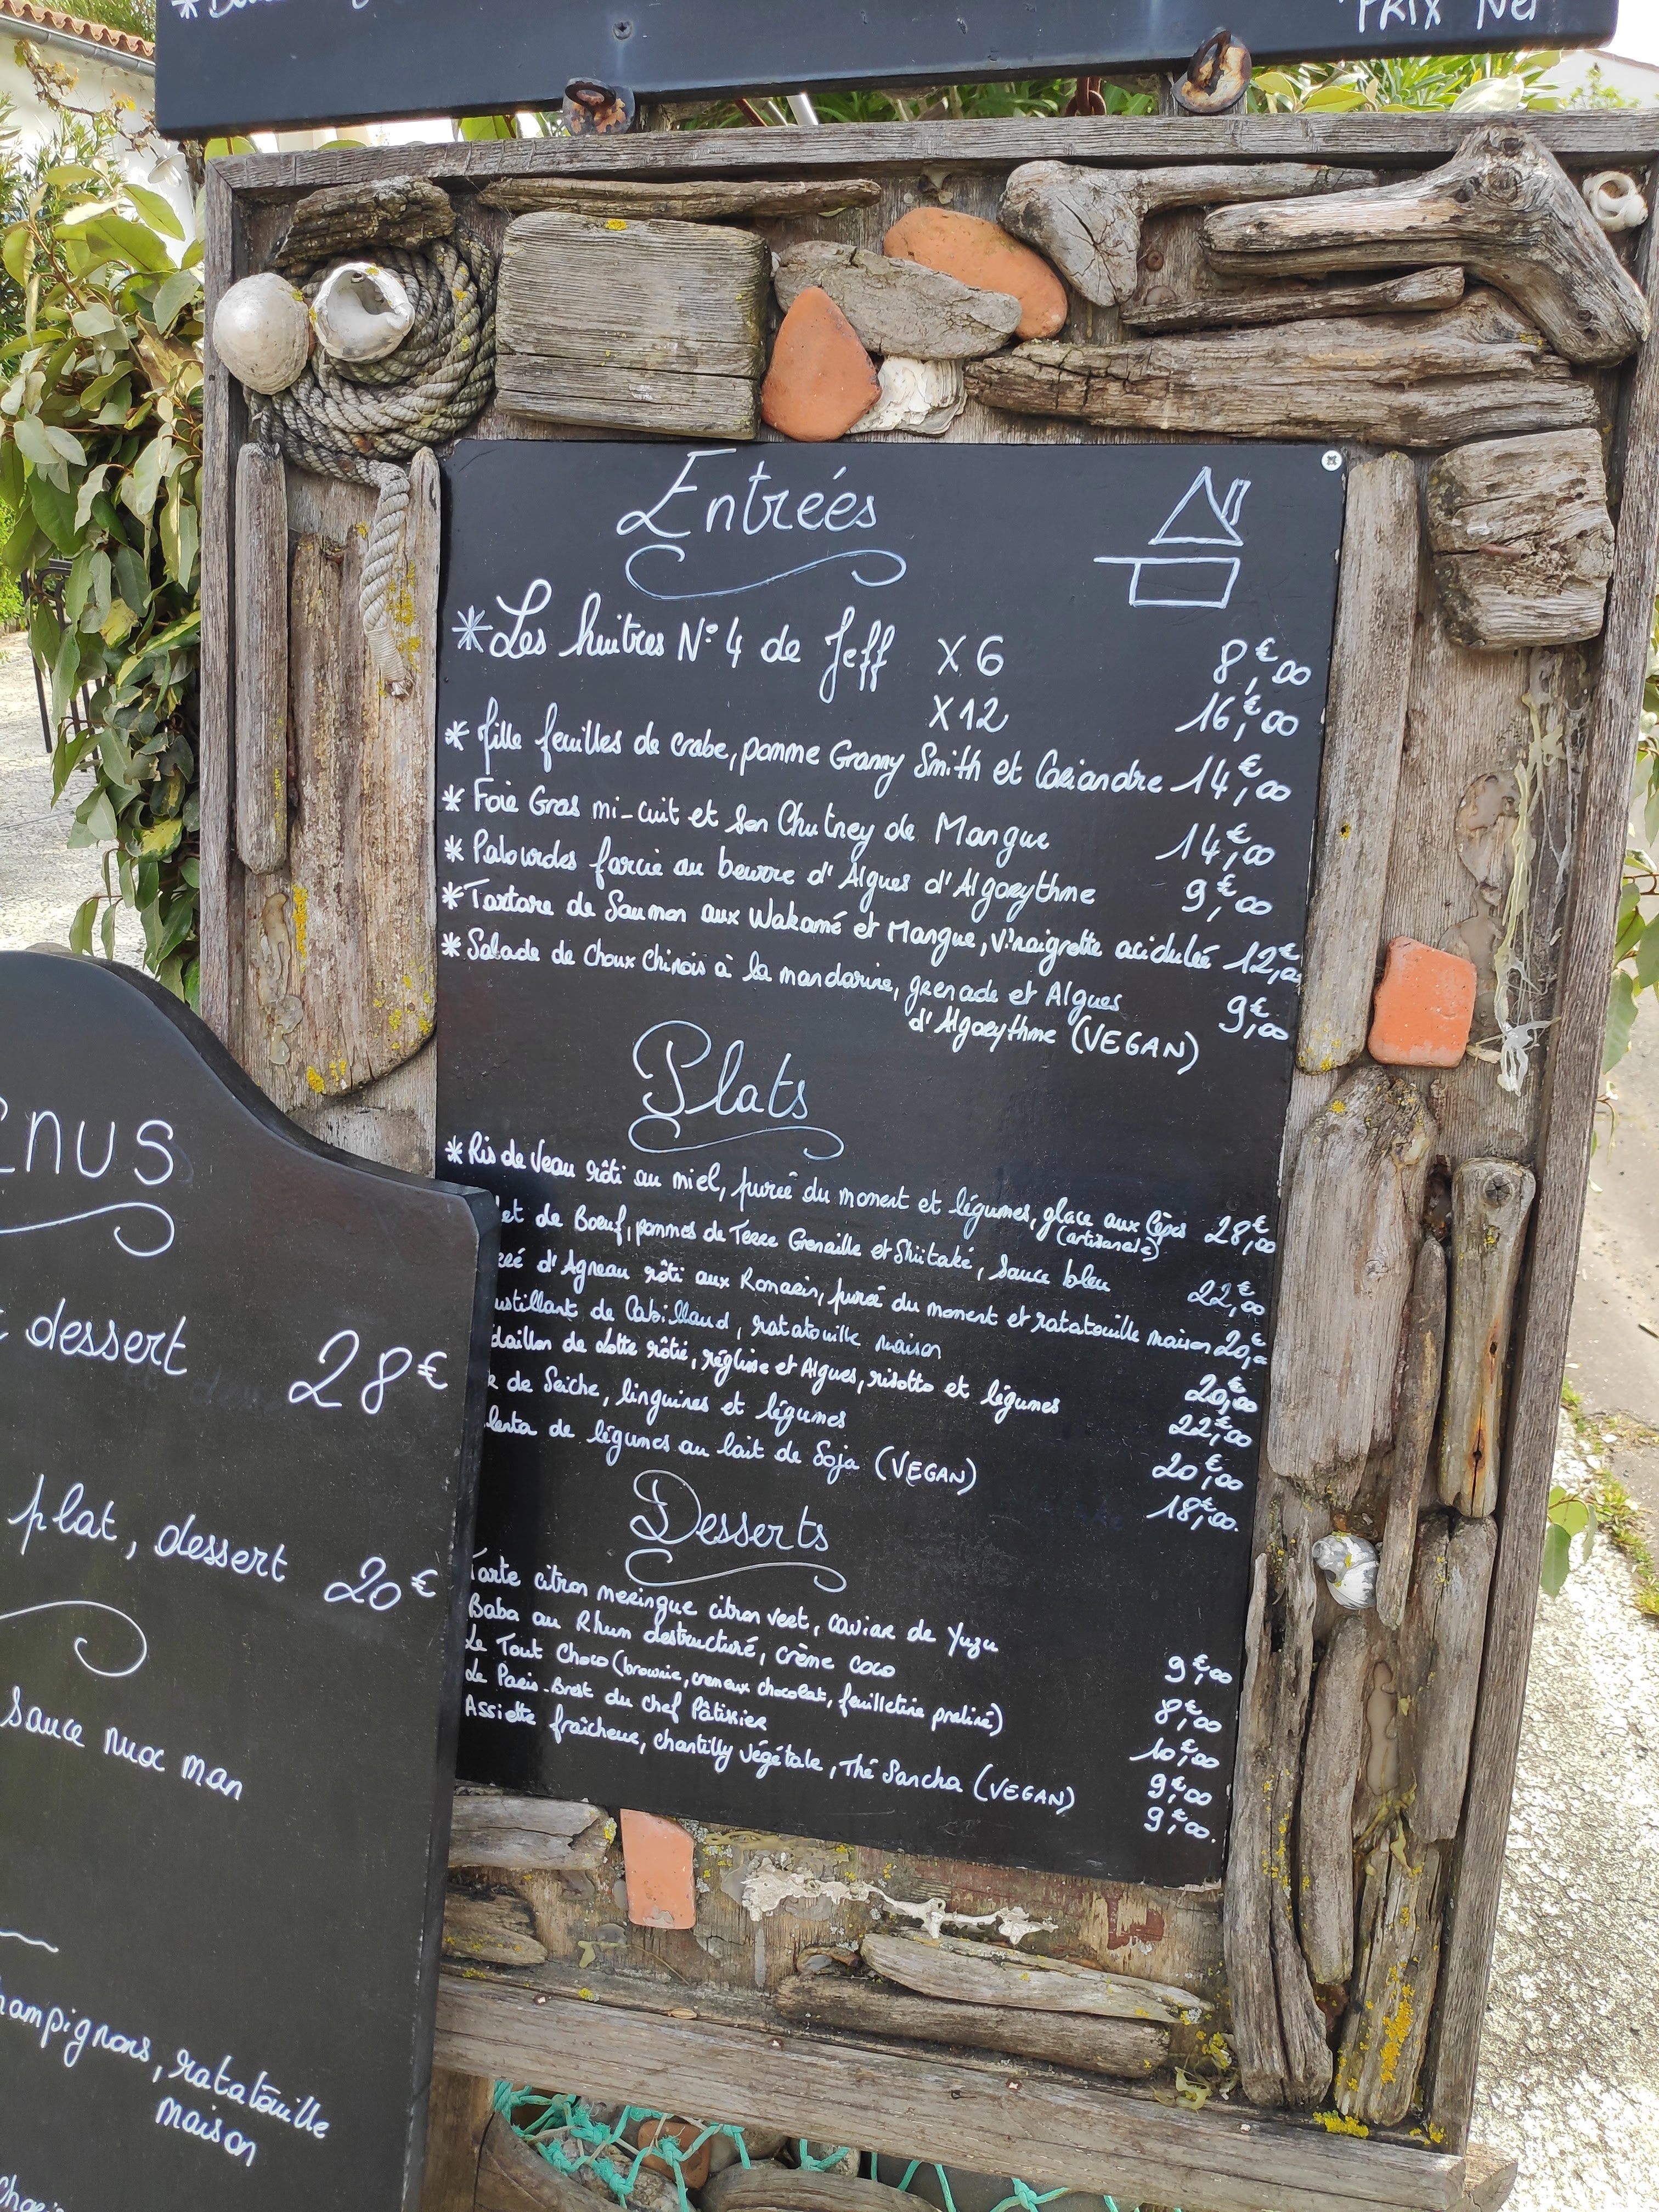 PRIX Net
Entréés
*Les huitres N°4 de Jeff X 6 8,€00
X12 16,€00
* fille feuilles de crabe, pomme Granny Smith et Coriandre 14,€00
* Foie Gras mi-cuit et son Chutney de Mangue 14,€00
* Palourdes farcie au beurre d'Algues d'Algorythme 9,€00
* Tartare de Saumon aux Wakamé et Mangue, Vinaigrette acidulée 12,€00
* Salade de Choux Chinois à la mandarine, grenade et Algues
d'Algorythme (VEGAN) 9,€00
Plats
* Ris de Veau rôti au miel, purée du moment et légumes, glace aux Cèpes 28,€00
(artisanale)
let de Boeuf, pommes de Terre Grenaille et Shiitaké, sauce bleu 22,€00
rré d'Agneau rôti aux Romarin, purée du moment et ratatouille maison 20,€
ustillant de Cabillaud, ratatouille maison 20,€00
daillon de Lotte rôtie, réglisse et Algues, risotto et légumes 22,€00
de Seiche, linguines et légumes 20,€00
lenta de légumes au lait de Soja (VEGAN) 18,€00.
Desserts
Tarte citron meringue citron vert, caviar de Yuzu 9,€00
Baba au Rhum destructuré, crème coco 8,€00
Le Tout Choco (brownie, cremeux chocolat, feuilletine praliné) 10,€00
Le Paris-Brest du chef Pâtissier 9,€00
Assiette fraîcheur, chantilly végétale, Thé Sancha (VEGAN) 9,€00.
enus
dessert 28€
plat, dessert 20€
sauce nuoc man
hampignons, ratatouille
maison